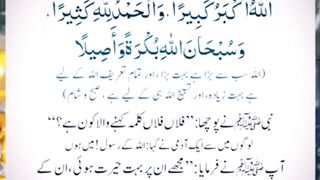 اَللّٰهُ اَكْبَرُ كَبِيرًا، وَالْحَمْدُ لِلّٰهِ كَثِيرًا،
وَسُبْحَانَ اللّٰهِ بُكْرَةً وَّأَصِيلًا
(اللہ سب سے بڑا ہے بہت بڑا، اور تمام تعریف اللہ کے لیے
ہے بہت زیادہ، اور تسبیح اللہ ہی کے لیے ہے، صبح و شام)
نبی ﷺ نے پوچھا: ”فلاں فلاں کلمہ کہنے والا کون ہے؟“
لوگوں میں سے ایک آدمی نے کہا: اللہ کے رسول! میں ہوں
آپ ﷺ نے فرمایا: ”مجھے ان پر بہت حیرت ہوئی، ان کے